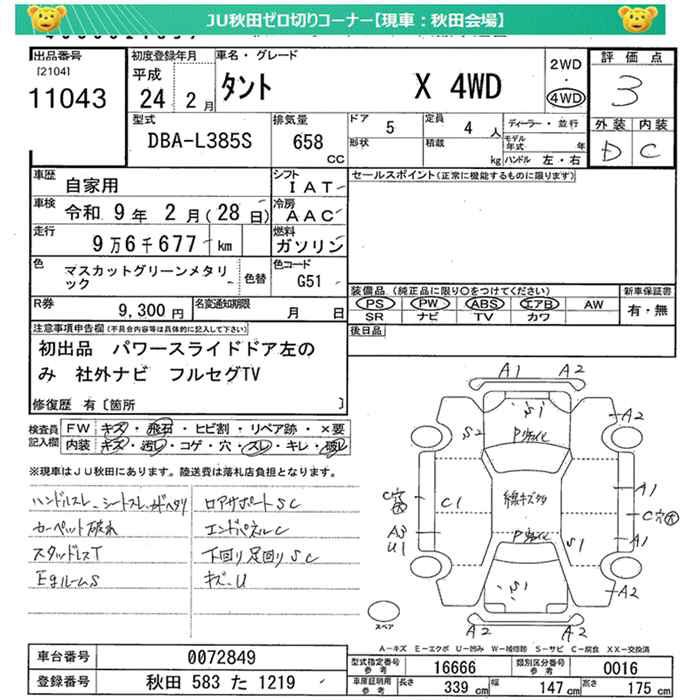 JU秋田ゼロ切りコーナー【現車：秋田会場】
出品番号 初度登録年月 車名・グレード 2WD・4WD 評価点
[2104]
11043 平成 24 2月 タント X 4WD 3
外装 内装
D C
型式 排気量 ドア 定員 ディーラー・並行
DBA-L385S 658 CC 5 4 人
形状 積載 kg モデル年式 年
ハンドル 左・右
車歴 自家用 シフト IAT セールスポイント(正常に機能するものに限ります)
車検 令和 9年 2月(28日) 冷房 AAC
走行 9万6千677 km 燃料 ガソリン
色 マスカットグリーンメタリック 色替 色コード G51
装備品(純正品に限り○をつけてください) 新車保証書
PS PW ABS エアB AW 有・無
SR ナビ TV カワ
R券 9,300円 名変通知期限 月 日
後日品
注意事項申告欄(不具合内容等は具体的に記入して下さい)
初出品 パワースライドドア左の
み 社外ナビ フルセグTV
修復歴 有〔箇所 〕
検査員記入欄 FW キズ・飛石・ヒビ割・リペア跡・×要
内装 キズ・汚レ・コゲ・穴・スレ・キレ・破レ
※現車はJU秋田にあります。陸送費は落札店負担となります。
ハンドルスレ、シートスレ、ガヘタリ ロアサポートSC
カーペット破れ エンドパネルC
スタッドレスT 下回り足回りSC
EgルームS キズ・U
A1 A2
S1
A2
S2
C穴
C1
A1
C穴
A3
U1
A1
S1
S1
A2
A2 A2
スペア
A-キズ E-エクボ U-凹み W-補修跡 S-サビ C-腐食 XX-交換済
車台番号 0072849
登録番号 秋田 583 た 1219
型式指定番号 参考 16666 類別区分番号 参考 0016
車庫証明用 参考 長さ 339 cm 幅 147 cm 高さ 175 cm